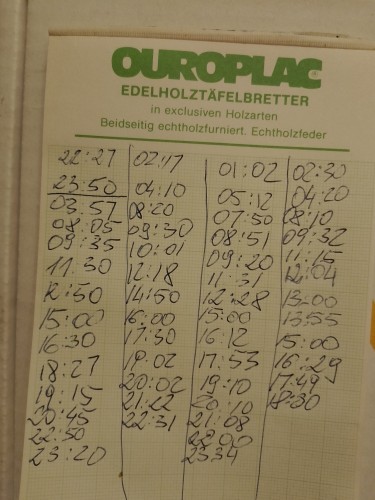 OUROPLAC®
EDELHOLZTÄFELBRETTER
in exclusiven Holzarten
Beidseitig echtholzfurniert. Echtholzfeder
22:27
23:50
03:57
08:05
09:35
11:30
12:50
15:00
16:30
18:27
19:15
20:45
22:50
23:20
02:17
04:10
08:20
09:30
10:01
12:18
14:50
16:00
17:30
19:02
20:02
21:22
22:31
01:02
05:12
07:50
08:51
09:20
11:31
12:28
15:00
16:12
17:53
19:10
20:10
21:08
22:00
23:34
02:30
04:20
08:10
09:32
11:15
12:04
13:00
13:55
15:00
16:29
17:49
18:30